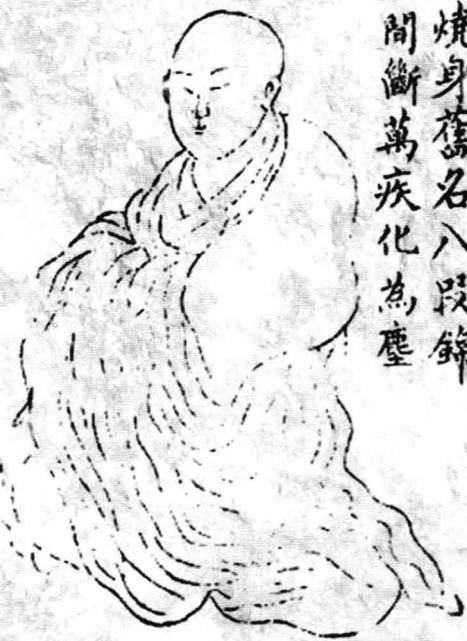 燒身舊名八段錦
間斷萬疾化為塵